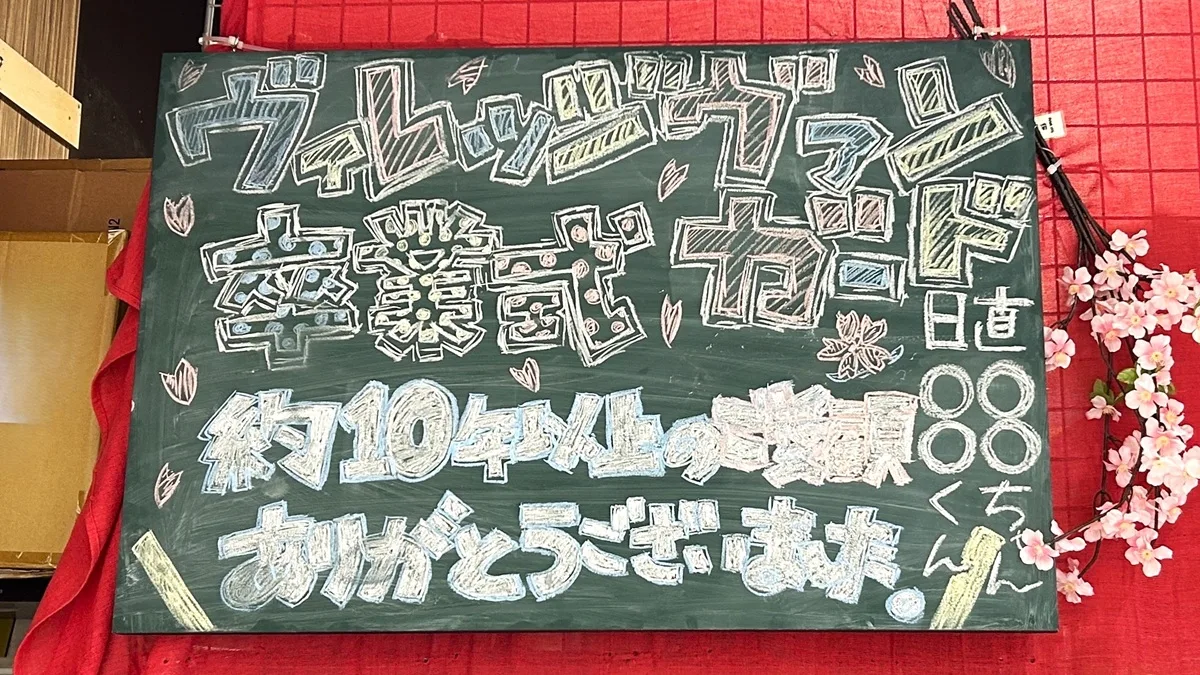 ヴィレッジヴァン
ガード
卒業式
約10年以上のご愛顧
ありがとうございました。
日直
○○ちゃん
○○くん